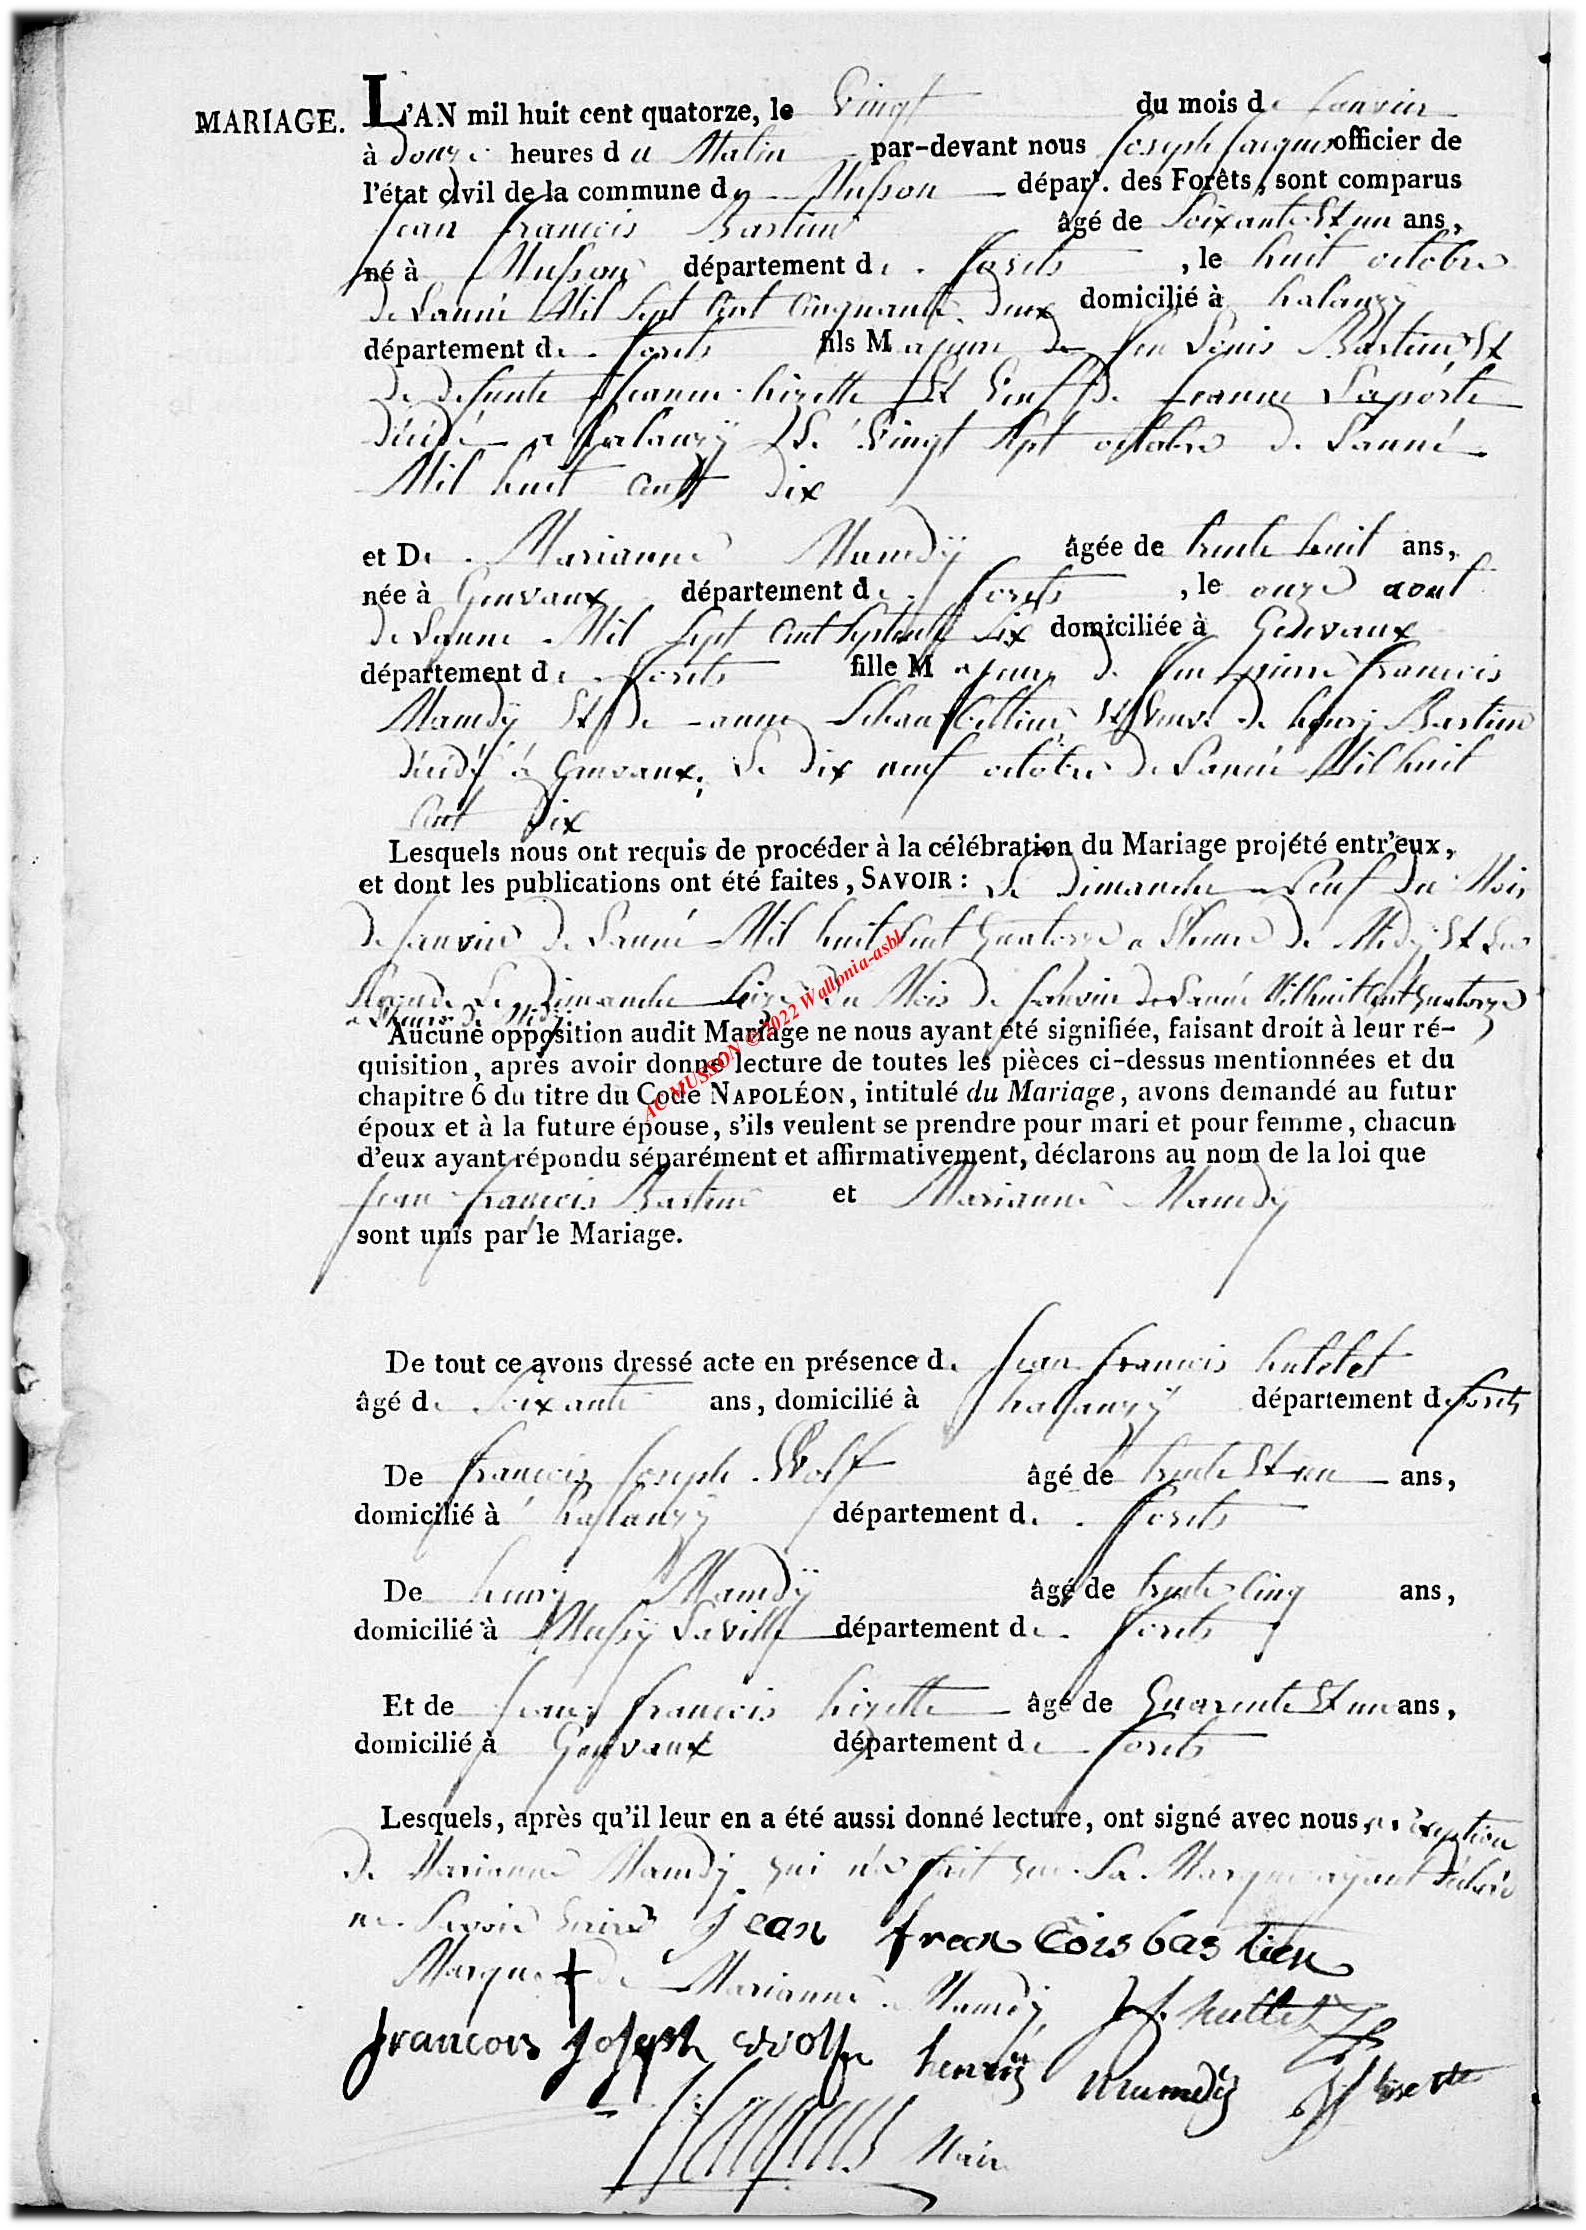 MARIAGE. L'AN mil huit cent quatorze, le Vingt du mois de Janvier
à douze heures du Matin par-devant nous Joseph Jacques officier de
l'état civil de la commune de Musson départ. des Forêts, sont comparus
Jean francois Bastien âgé de Soixante Et un ans,
né à Musson département de forets, le huit octobre
de Lanné Mil Sept Cent Cinquante deux domicilié à halanzÿ
département de forets fils Majeure de feu Bastien Et
de defunte Jeanne hizette Et Veuf de Jeanne Laporte
décidé a halanzÿ Le Vingt Sept octobre de Lanné
Mil huit Cent dix
et De Marianne Mamdÿ âgée de trente huit ans,
née à Gennvaux département de forets, le onze aout
de Lanne Mil Sept Cent Septante Six domiciliée à Gennvaux
département de forets fille Majeure de feu pierre francois
Mamdÿ Et de anne Et Veuve de henry Bastien
décidé à Gennvaux, Le dix neuf octobre de Lanné Mil huit
Cent dix
Lesquels nous ont requis de procéder à la célébration du Mariage projété entr'eux,
et dont les publications ont été faites, SAVOIR : Le dimanche neuf du Mois
de Janvier de Lanné Mil huit Cent Quatorze a Lheure de Midÿ Et La
Segonde Le Dimanche Seize du Mois de Janvier de Lanné Mil huit Cent Quatorze
a Lheure de Midÿ
Aucune opposition audit Mariage ne nous ayant été signifiée, faisant droit à leur ré-
quisition, après avoir donné lecture de toutes les pièces ci-dessus mentionnées et du
chapitre 6 du titre du Code NAPOLÉON, intitulé du Mariage, avons demandé au futur
époux et à la future épouse, s'ils veulent se prendre pour mari et pour femme, chacun
d'eux ayant répondu séparément et affirmativement, déclarons au nom de la loi que
Jean francois Bastien et Marianne Mamdÿ
sont unis par le Mariage.
AC MUSSON © 2022 Wallonia-asbl
De tout ce avons dressé acte en présence de Jean francois hutlet
âgé de Soixante ans, domicilié à halanzÿ département de forets
De francois Joseph Wolf âgé de trente Et un ans,
domicilié à halanzÿ département de forets
De henry Mamdÿ âgé de trente Cinq ans,
domicilié à Mussÿ La ville département de forets
Et de Jean francois hizette âgé de Quarente Et un ans,
domicilié à Gennvaux département de forets
Lesquels, après qu'il leur en a été aussi donné lecture, ont signé avec nous a exeption
de Marianne Mamdÿ qui n'a fait que Sa Marque ayant déclaré
ne Savoir Ecrire jean francois bastien
Marque + de Marianne Mamdÿ J f hutlet
francois Joseph wolf henrÿ mamdÿ J f hisette
J Jacques Maire